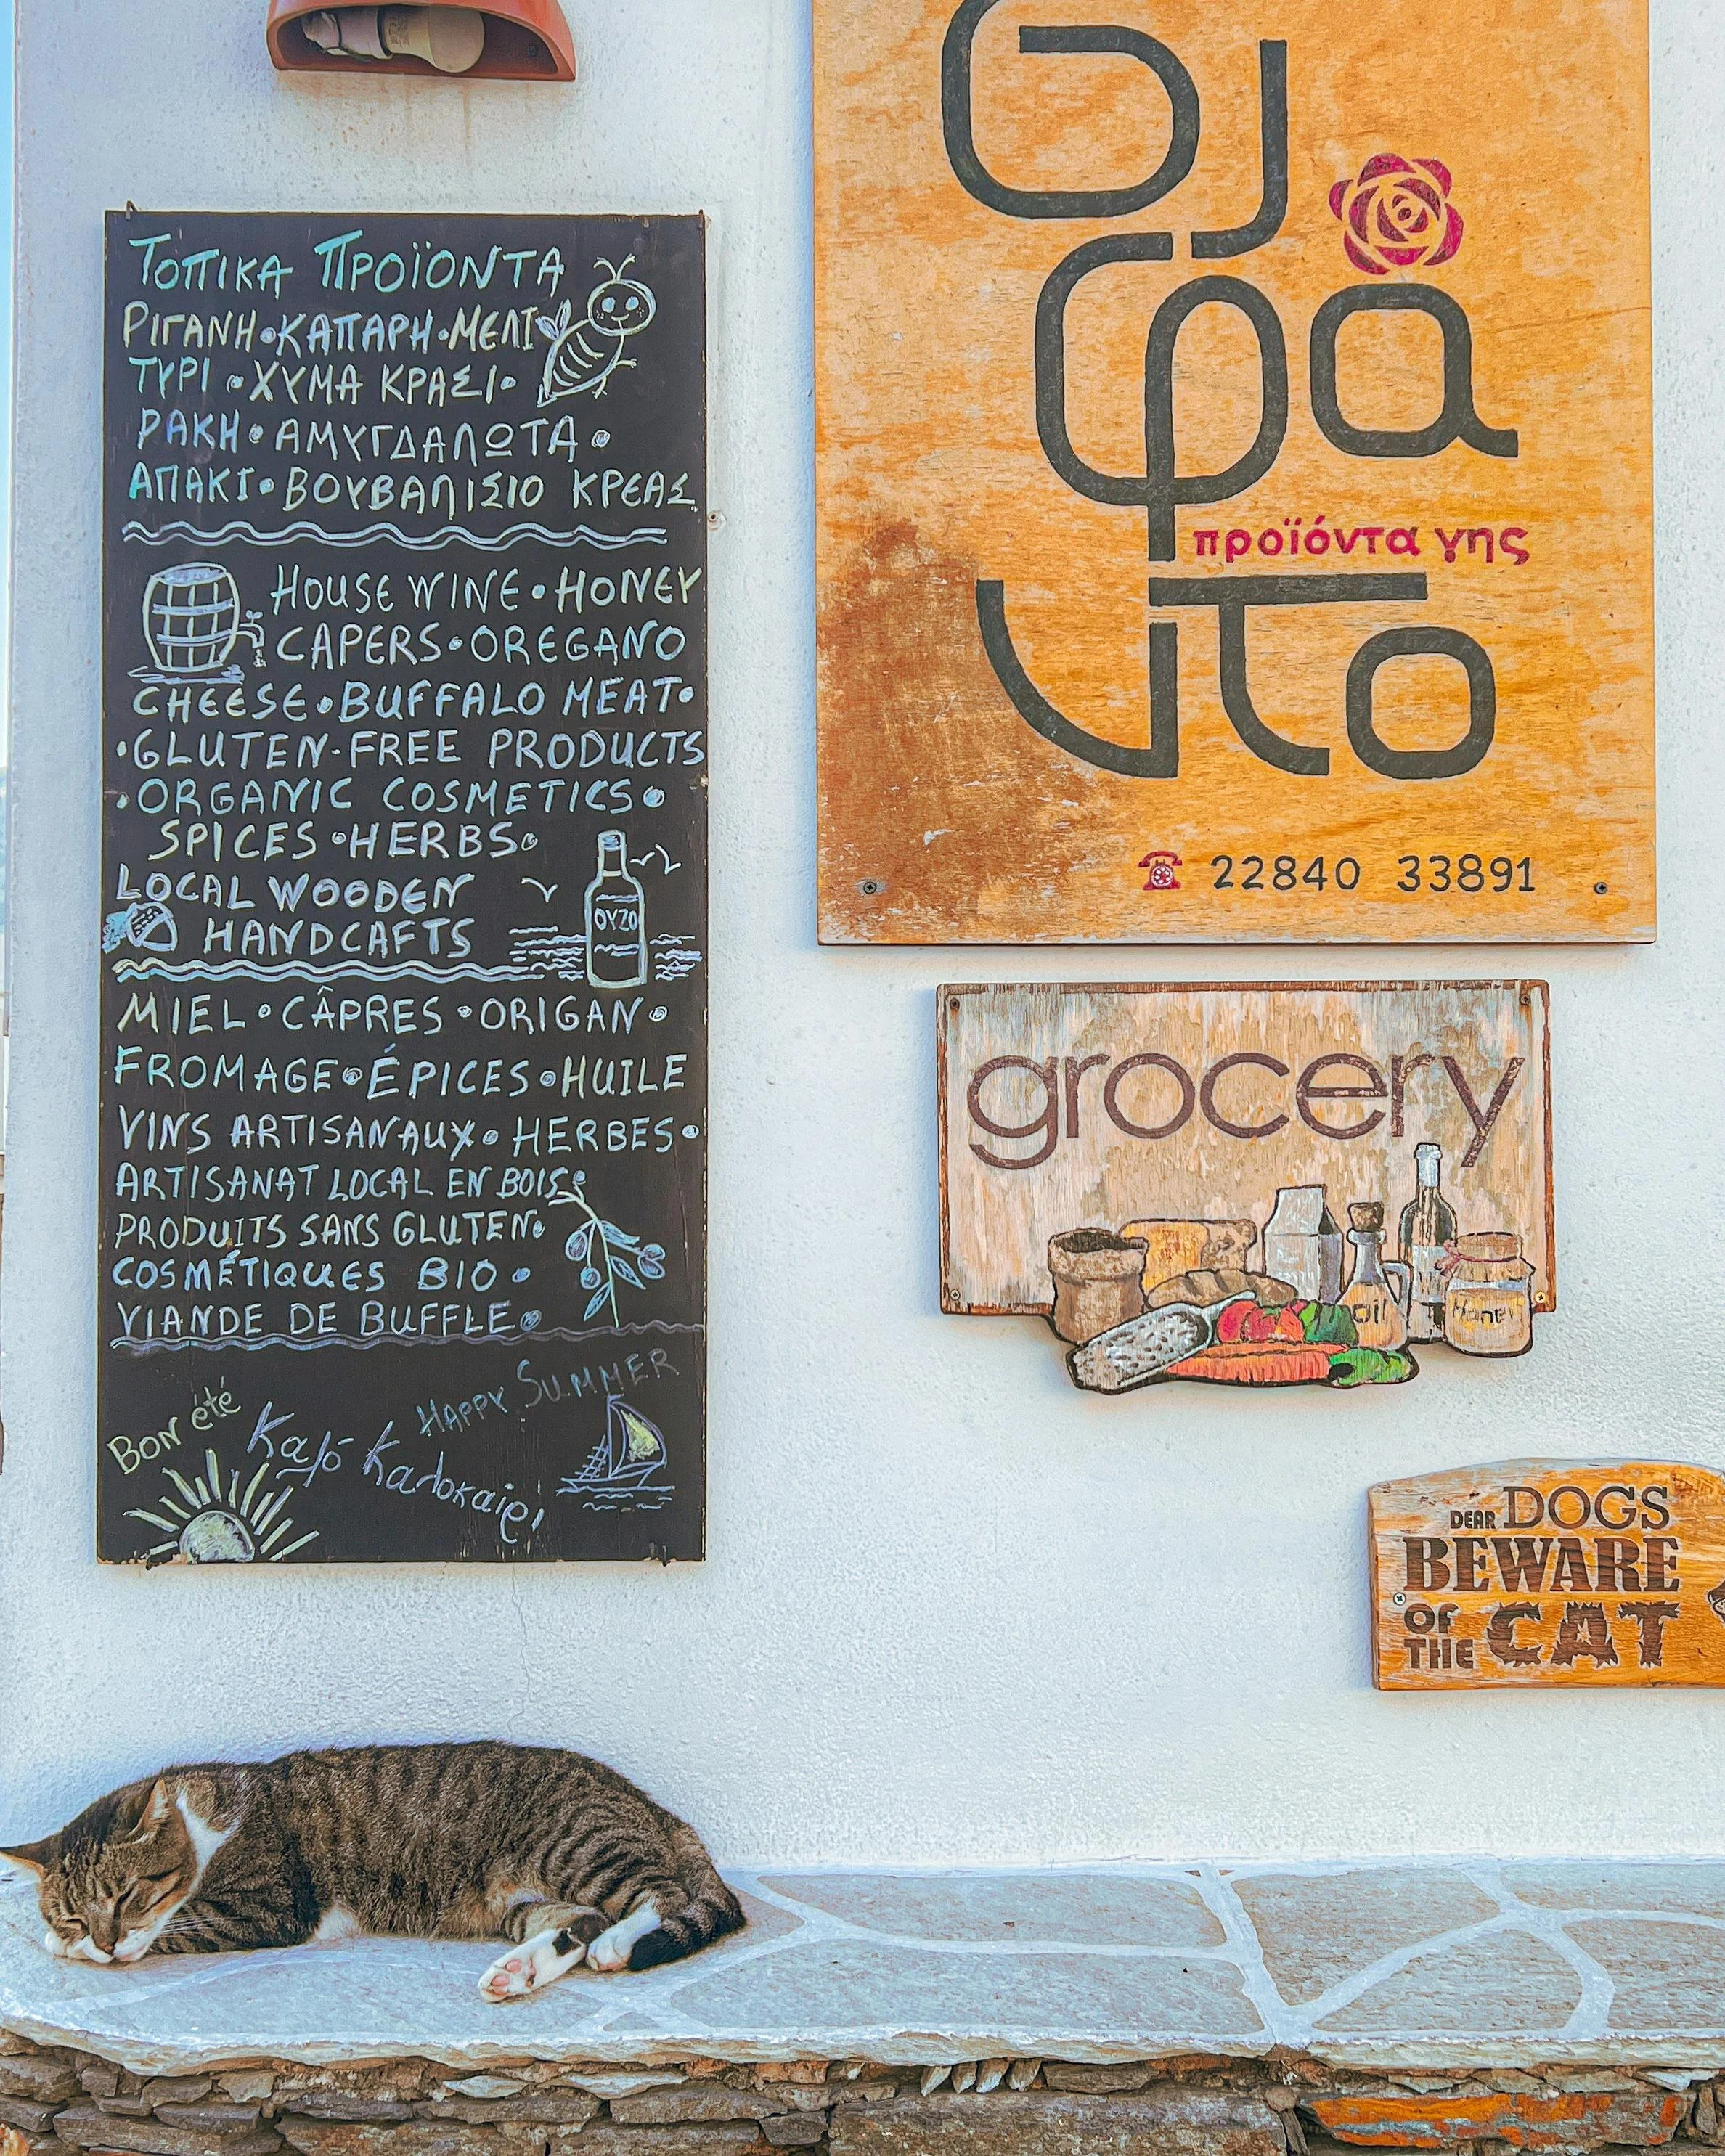 ΤΟΠΙΚΑ ΠΡΟΪΟΝΤΑ
ΡΙΓΑΝΗ•ΚΑΠΑΡΗ•ΜΕΛΙ
ΤΥΡΙ•ΧΥΜΑ ΚΡΑΣΙ•
ΡΑΚΗ•ΑΜΥΓΔΑΛΩΤΑ•
ΑΠΑΚΙ•ΒΟΥΒΑΛΙΣΙΟ ΚΡΕΑΣ
HOUSE WINE•HONEY
CAPERS•OREGANO
CHEESE•BUFFALO MEAT•
•GLUTEN-FREE PRODUCTS
•ORGANIC COSMETICS•
SPICES•HERBS•
LOCAL WOODEN
HANDCAFTS
ΟΥΖΟ
MIEL•CÂPRES•ORIGAN•
FROMAGE•ÉPICES•HUILE
VINS ARTISANAUX•HERBES•
ARTISANAT LOCAL EN BOIS•
PRODUITS SANS GLUTEN•
COSMÉTIQUES BIO•
VIANDE DE BUFFLE•
Bon été
HAPPY SUMMER
Καλό Καλοκαίρι
προϊόντα γης
22840 33891
grocery
oil
Honey
DEAR DOGS
BEWARE
OF
THE CAT